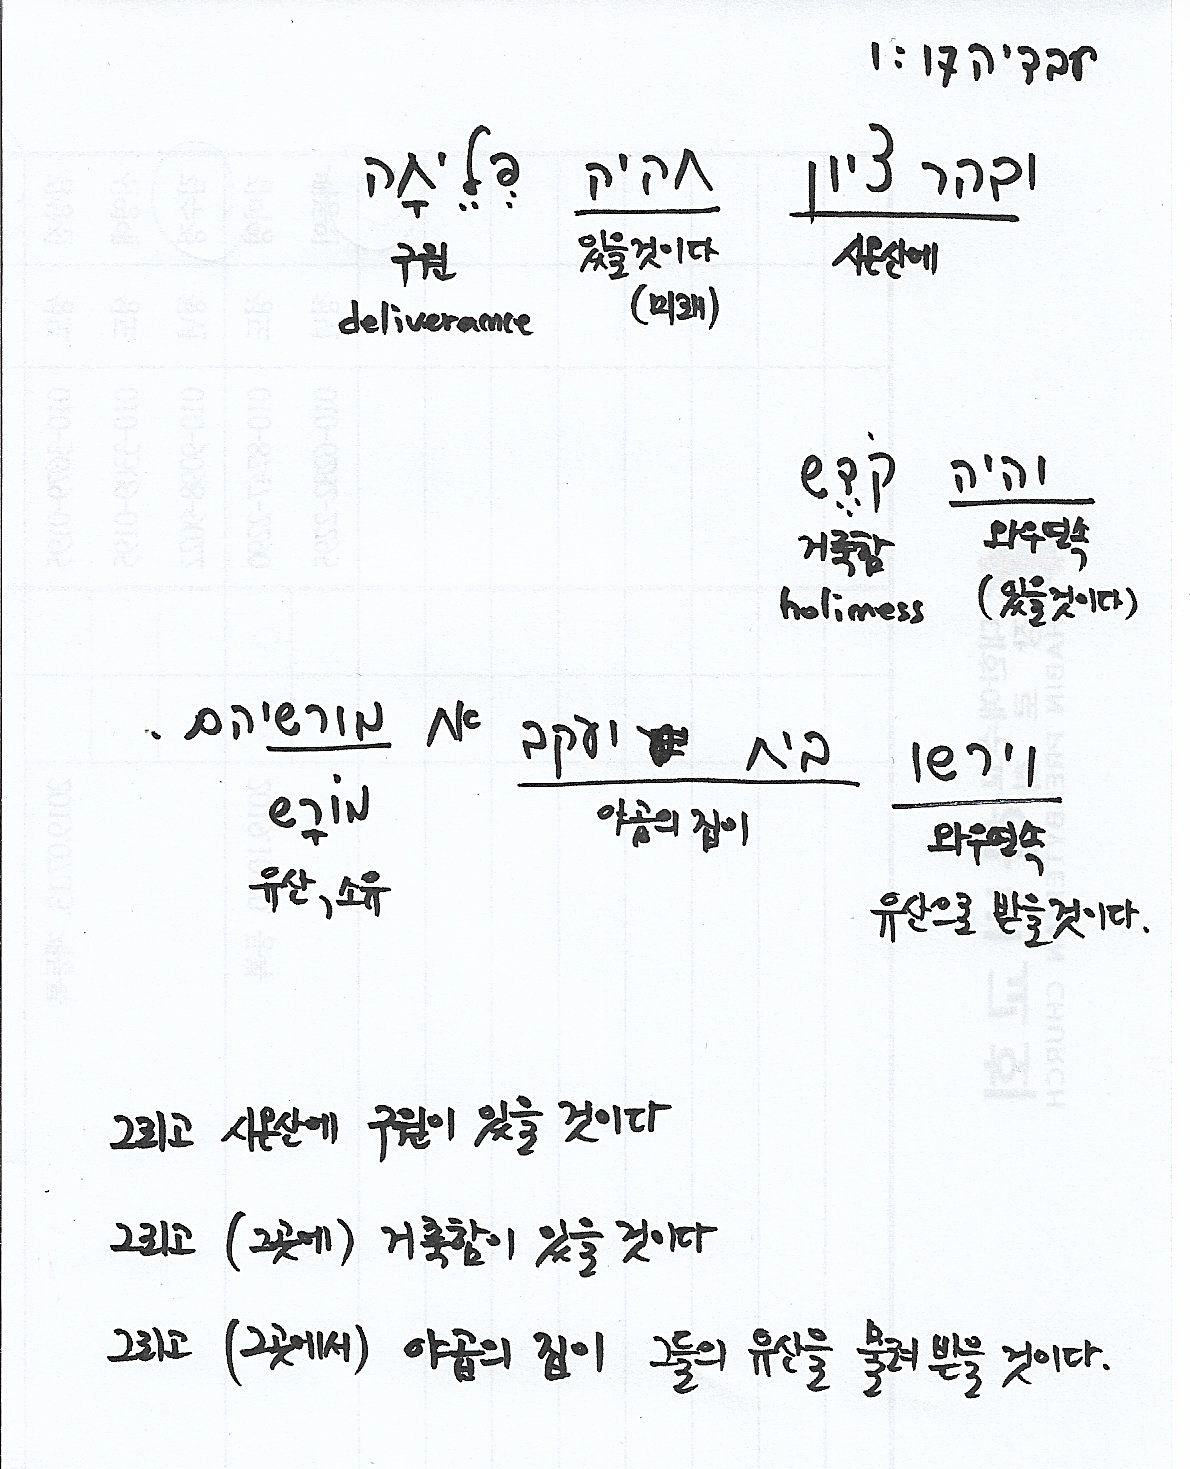 עבדיה 1:17
ובהר ציון תהיה פְּלֵיטָה
시온산에 있을것이다 구원
(미래) deliverance
והיה קֹדֶשׁ
와우연속 거룩함
(있을것이다) holiness
וירשו בית יעקב את מורשיהם .
와우연속 야곱의 집이 מוֹרָשׁ
유산으로 받을것이다. 유산, 소유
그리고 시온산에 구원이 있을 것이다
그리고 (그곳에) 거룩함이 있을 것이다
그리고 (그곳에서) 야곱의 집이 그들의 유산을 물려 받을 것이다.